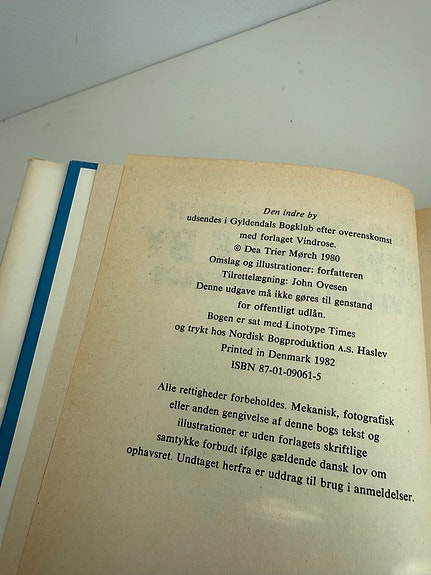 Den indre by
udsendes i Gyldendals Bogklub efter overenskomst
med forlaget Vindrose.
© Dea Trier Mørch 1980
Omslag og illustrationer: forfatteren
Tilrettelægning: John Ovesen
Denne udgave må ikke gøres til genstand
for offentligt udlån.
Bogen er sat med Linotype Times
og trykt hos Nordisk Bogproduktion A.S. Haslev
Printed in Denmark 1982
ISBN 87-01-09061-5
Alle rettigheder forbeholdes. Mekanisk, fotografisk
eller anden gengivelse af denne bogs tekst og
illustrationer er uden forlagets skriftlige
samtykke forbudt ifølge gældende dansk lov om
ophavsret. Undtaget herfra er uddrag til brug i anmeldelser.